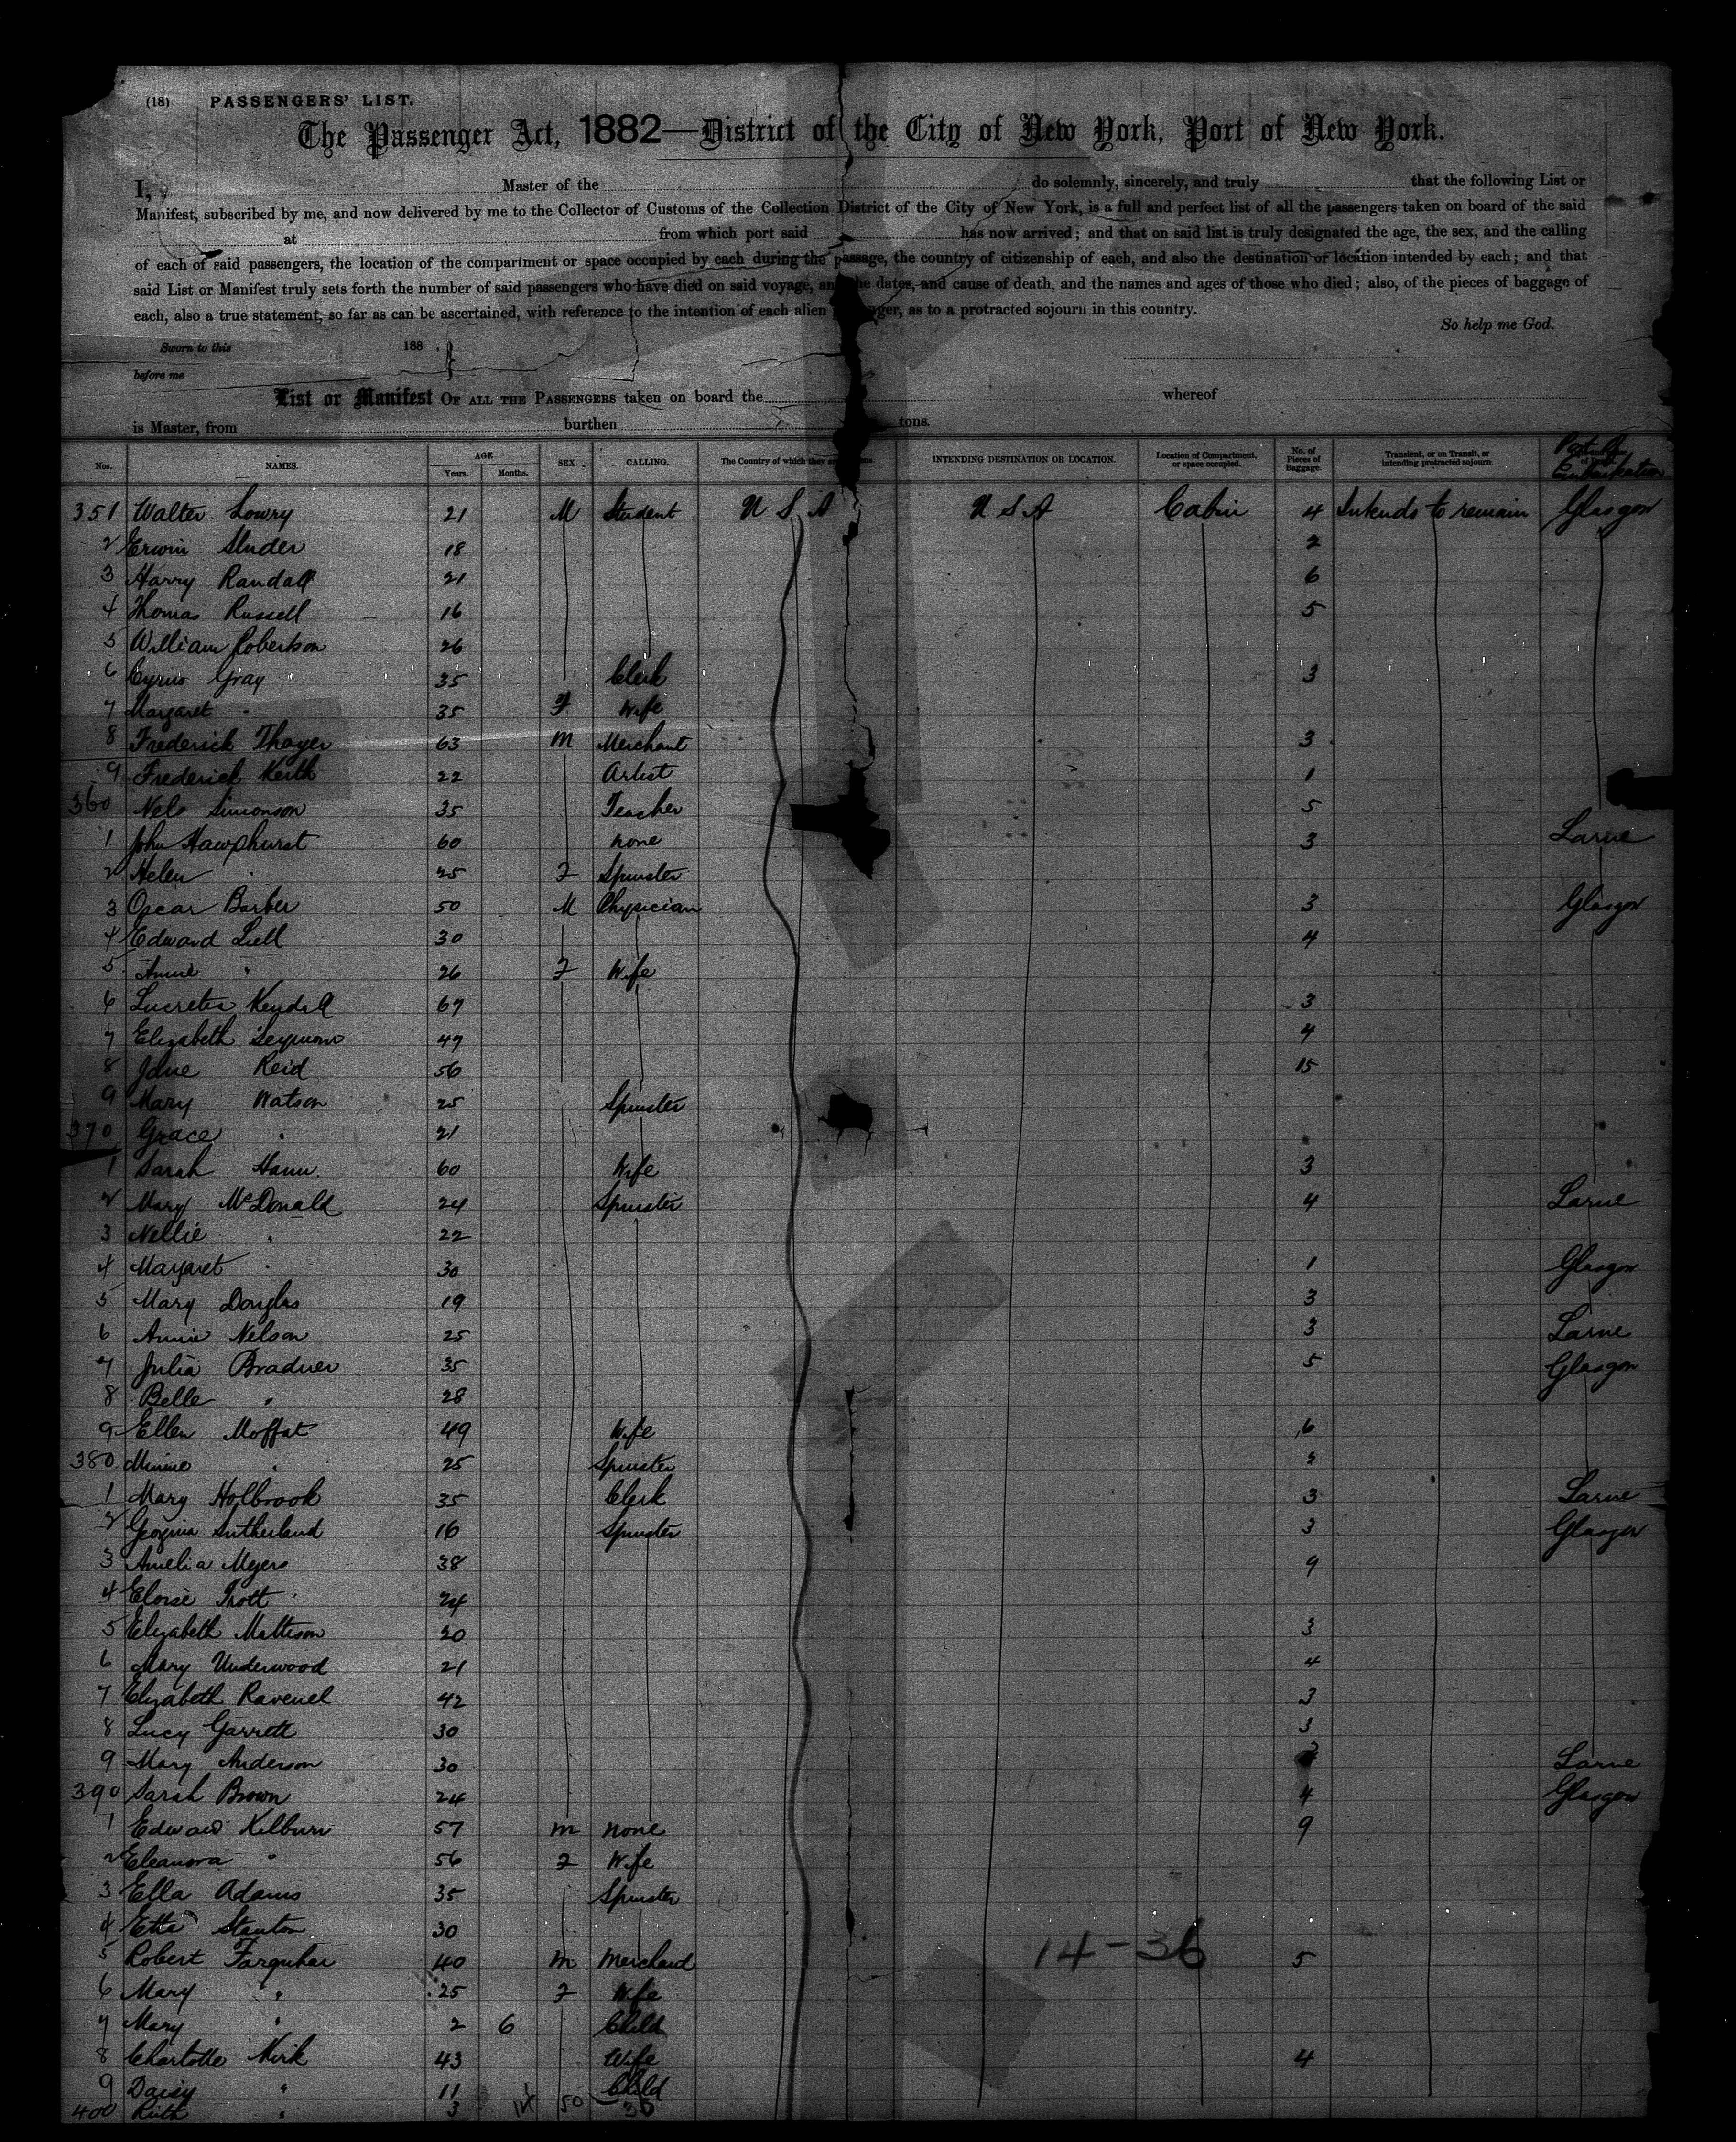 (18) PASSENGERS' LIST.
The Passenger Act, 1882—District of the City of New York, Port of New York.
I, Master of the do solemnly, sincerely, and truly that the following List or
Manifest, subscribed by me, and now delivered by me to the Collector of Customs of the Collection District of the City of New York, is a full and perfect list of all the passengers taken on board of the said
at from which port said has now arrived; and that on said list is truly designated the age, the sex, and the calling
of each of said passengers, the location of the compartment or space occupied by each during the passage, the country of citizenship of each, and also the destination or location intended by each; and that
said List or Manifest truly sets forth the number of said passengers who have died on said voyage, and the dates, and cause of death, and the names and ages of those who died; also, of the pieces of baggage of
each, also a true statement, so far as can be ascertained, with reference to the intention of each alien as to a protracted sojourn in this country.
So help me God.
Sworn to this 188
before me
List or Manifest OF ALL THE PASSENGERS taken on board the whereof
is Master, from burthen tons.
Nos. NAMES. AGE Years. Months. SEX. CALLING. The Country of which they are INTENDING DESTINATION OR LOCATION. Location of Compartment, or space occupied. No. of Pieces of Baggage. Transient, or on Transit, or intending protracted sojourn. Port of Embarkation
351 Walter Lowry 21 M Student U S A U S A Cabin 4 Intends to remain Glasgow
2 Erwin Studer 18 2
3 Harry Randall 21 6
4 Thomas Russell 16 5
5 William Robertson 26
6 Cyrus Gray 35 Clerk 3
7 Margaret " 35 F Wife
8 Frederick Thayer 63 M Merchant 3
9 Frederick Keith 22 Artist 1
360 Nels Simonson 35 Teacher 5
1 John Hawxhurst 60 none 3 Larne
2 Helen " 25 F Spinster
3 Oscar Barber 50 M Physician 3 Glasgow
4 Edward Liell 30 4
5 Annie " 26 F Wife
6 Lucretia Kendall 67 3
7 Elizabeth Seymour 47 4
8 Jane Reid 56 15
9 Mary Watson 25 Spinster
370 Grace " 21
1 Sarah Hann 60 Wife 3
2 Mary McDonald 24 Spinster 4 Larne
3 Nellie " 22
4 Margaret " 30 1 Glasgow
5 Mary Douglas 19 3
6 Annie Nelson 25 3 Larne
7 Julia Bradner 35 5 Glasgow
8 Belle " 28
9 Ellen Moffat 49 Wife 6
380 Minnie " 25 Spinster
1 Mary Holbrook 35 Clerk 3 Larne
2 Georgina Sutherland 16 Spinster 3 Glasgow
3 Amelia Myers 38 9
4 Eloise Trott 24
5 Elizabeth Mattison 20 3
6 Mary Underwood 21 4
7 Elizabeth Ravenel 42 3
8 Lucy Garrett 30 3
9 Mary Anderson 30 Larne
390 Sarah Brown 24 4 Glasgow
1 Edward Kilburn 57 M none 9
2 Eleanora " 56 F Wife
3 Ella Adams 35 Spinster
4 Etta Stanton 30
14-36
5 Robert Farquhar 40 M Merchant 5
6 Mary " 25 F Wife
7 Mary " 2 6 Child
8 Charlotte Kirk 43 Wife 4
9 Daisy " 11 Child
400 Ruth " 3 14 50 36